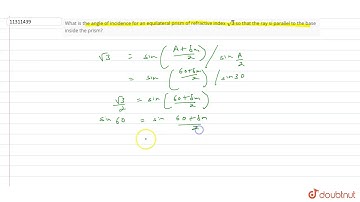 11311439
What is the angle of incidence for an equilateral prism of refractive index √3 so that the ray is parallel to the base
inside the prism?
√3 = sin(A+δm/2) / sin A/2
= sin(60+δm/2) / sin30
√3/2 = sin(60+δm/2)
sin 60 = sin 60+δm/2
doubtnut